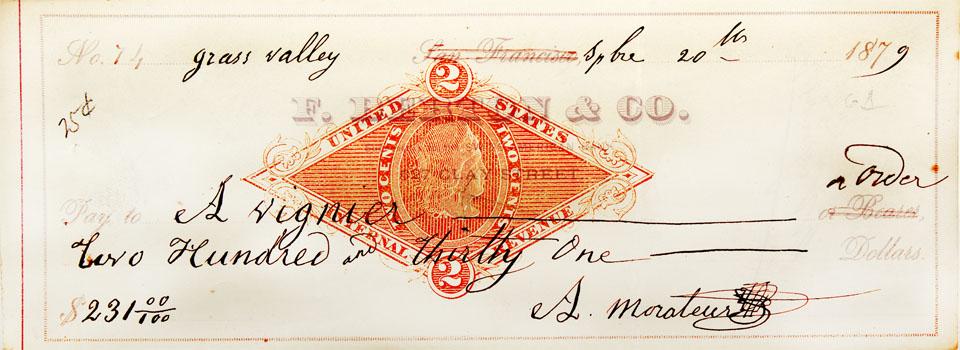 No. 74 grass valley San Francisco Spbre 20th 1879
25¢
F. & CO.
2
UNITED STATES
TWO CENTS TWO CENTS
CLAY STREET
or Order
Pay to A vignier or Bearer,
INTERNAL REVENUE
Two Hundred and thirty One Dollars.
2
$231 00/100 A. morateur